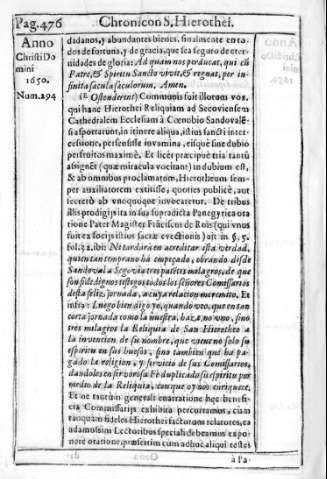 Pag.476 Chronicon S. Hierothei.
Anno
Christi Do
mini
1650.
Num.294
dadanos, y abundantes bienes, finalmente en to-
dos de fortuna, y de gracia, que sea seguro de eter-
nidades de gloria: Ad quam nos perducat, qui cū
Patre, & Spiritu Sancto vivit, & regnat, per in-
finita sæcula sæculorum, Amen.
Ostenderent) Communis fuit illorum vox,
qui hanc Hierothei Reliquiam ad Secoviensem
Cathedralem Ecclesiam à Cœnobio Sandovalē-
si asportarunt, in itinere aliqua, istius sancti inter-
cessione, persensisse iuvamina, eisquè sine dubio
perfruitos maximè. Et licèt præcipuè tria tantū
assignēt (quæ miracula vocitant) in dubium est,
& ab omnibus proclamatum, Hierotheum sem-
per auxiliatorem extitisse, quoties publicè, aut
secretò ab vnoquoque invocaretur. De tribus
illis prodigijs ita in sua supradicta Panegyrica ora
tione Pater Magister Frāciscus de Rois (qui vnus
fuit ex socijs istius sacræ evectionis) ait in §. 5.
fol. 32. ibi: Ne tardarà en acreditar esta verdad,
quien tan temprano hà empeçado, obrando desde
Sandoval a Segovia tres patētes milagros, de que
son fidedignos testigos todos los señores Comissarios
desta feliz jornada, a cuya relacion me remito. Et
infra: Luego bien digo yo, quando veo, que en tan
corta jornada como la nuestra, haze, no vno, sino
tres milagros la Reliquia de San Hierotheo a
la invencion de su nombre, que viene no solo su
espiritu en sus huesos, sino tambien que ha pa-
gado la religion, y servicio de sus Comissarios,
dandoles en ser virosu Fè duplicado su espiritu por
medio de la Reliquia, aunque oy nos enriquece.
Et ne tantùm generali enarratione hæc benefi-
cia Commissarijs exhibita percurramus, cùm
tanquam fideles Hierothei factorum relatores, ea
ad amussim Lectoribus speciali debeamus expo-
nere oratione præsertim cùm adhuc aliqui testes
à Pa-